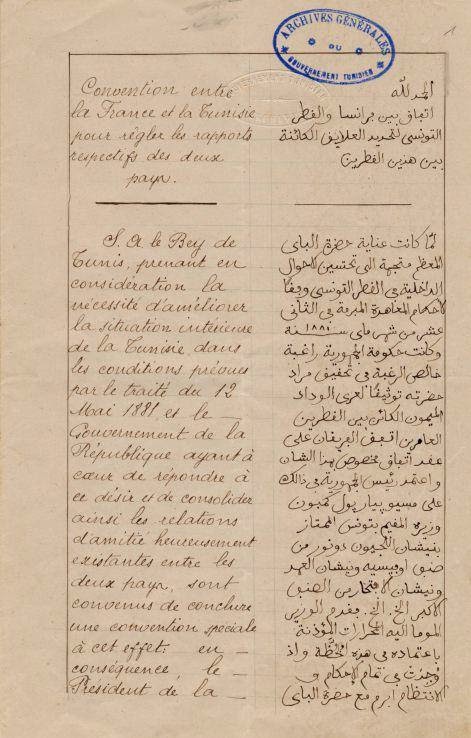 1
ARCHIVES GÉNÉRALES
DU
GOUVERNEMENT TUNISIEN
Convention entre
la France et la Tunisie
pour régler les rapports
respectifs des deux
pays.
S. A le Bey de
Tunis, prenant en
considération la
nécessité d'améliorer
la situation intérieure
de la Tunisie, dans
les conditions prévues
par le traité du 12
Mai 1881, et le —
Gouvernement de la
République ayant à
cœur de répondre à
ce désir et de consolider
ainsi les relations
d'amitié heureusement
existantes entre les
deux pays, sont
convenus de conclure
une convention spéciale
à cet effet. en —
conséquence, le —
Président de la —
الحمد لله
اتفاق بين برانسا والقطر
التونسي لتحديد العلايق الكائنة
بين هذين القطرين
لما كانت عناية حضرة الباي
المعظم متجهة الى تحسين الاحوال
الداخلية في القطر التونسي وفقا
لاحكام المعاهدة المبرمة في الثاني
عشر من شهر ماي سنة ١٨٨١
وكانت حكومة الجمهورية راغبة
خالص الرغبة في تحقيق مراد
حضرته توثيقا لعرى الوداد
الميمون الكائن بين القطرين
العامرين اتفق الفريقان على
عقد اتفاق مخصوص بهذا الشان
واعتمد رئيس الجمهورية في ذالك
على مسيو بيار بول كمبون
وزيره المقيم بتونس الممتاز
بنيشان اللجيون دونور من
صنف اوفيسيه ونيشان العهد
ونيشان الافتخار من الصنف
الاكبر الخ. الخ. فقدم الوزير
الموما اليه المحررات المؤذنة
باعتماده في هذه الخطة واذ
وجدت في تمام الاحكام و
الانتظام ابرم مع حضرة الباي